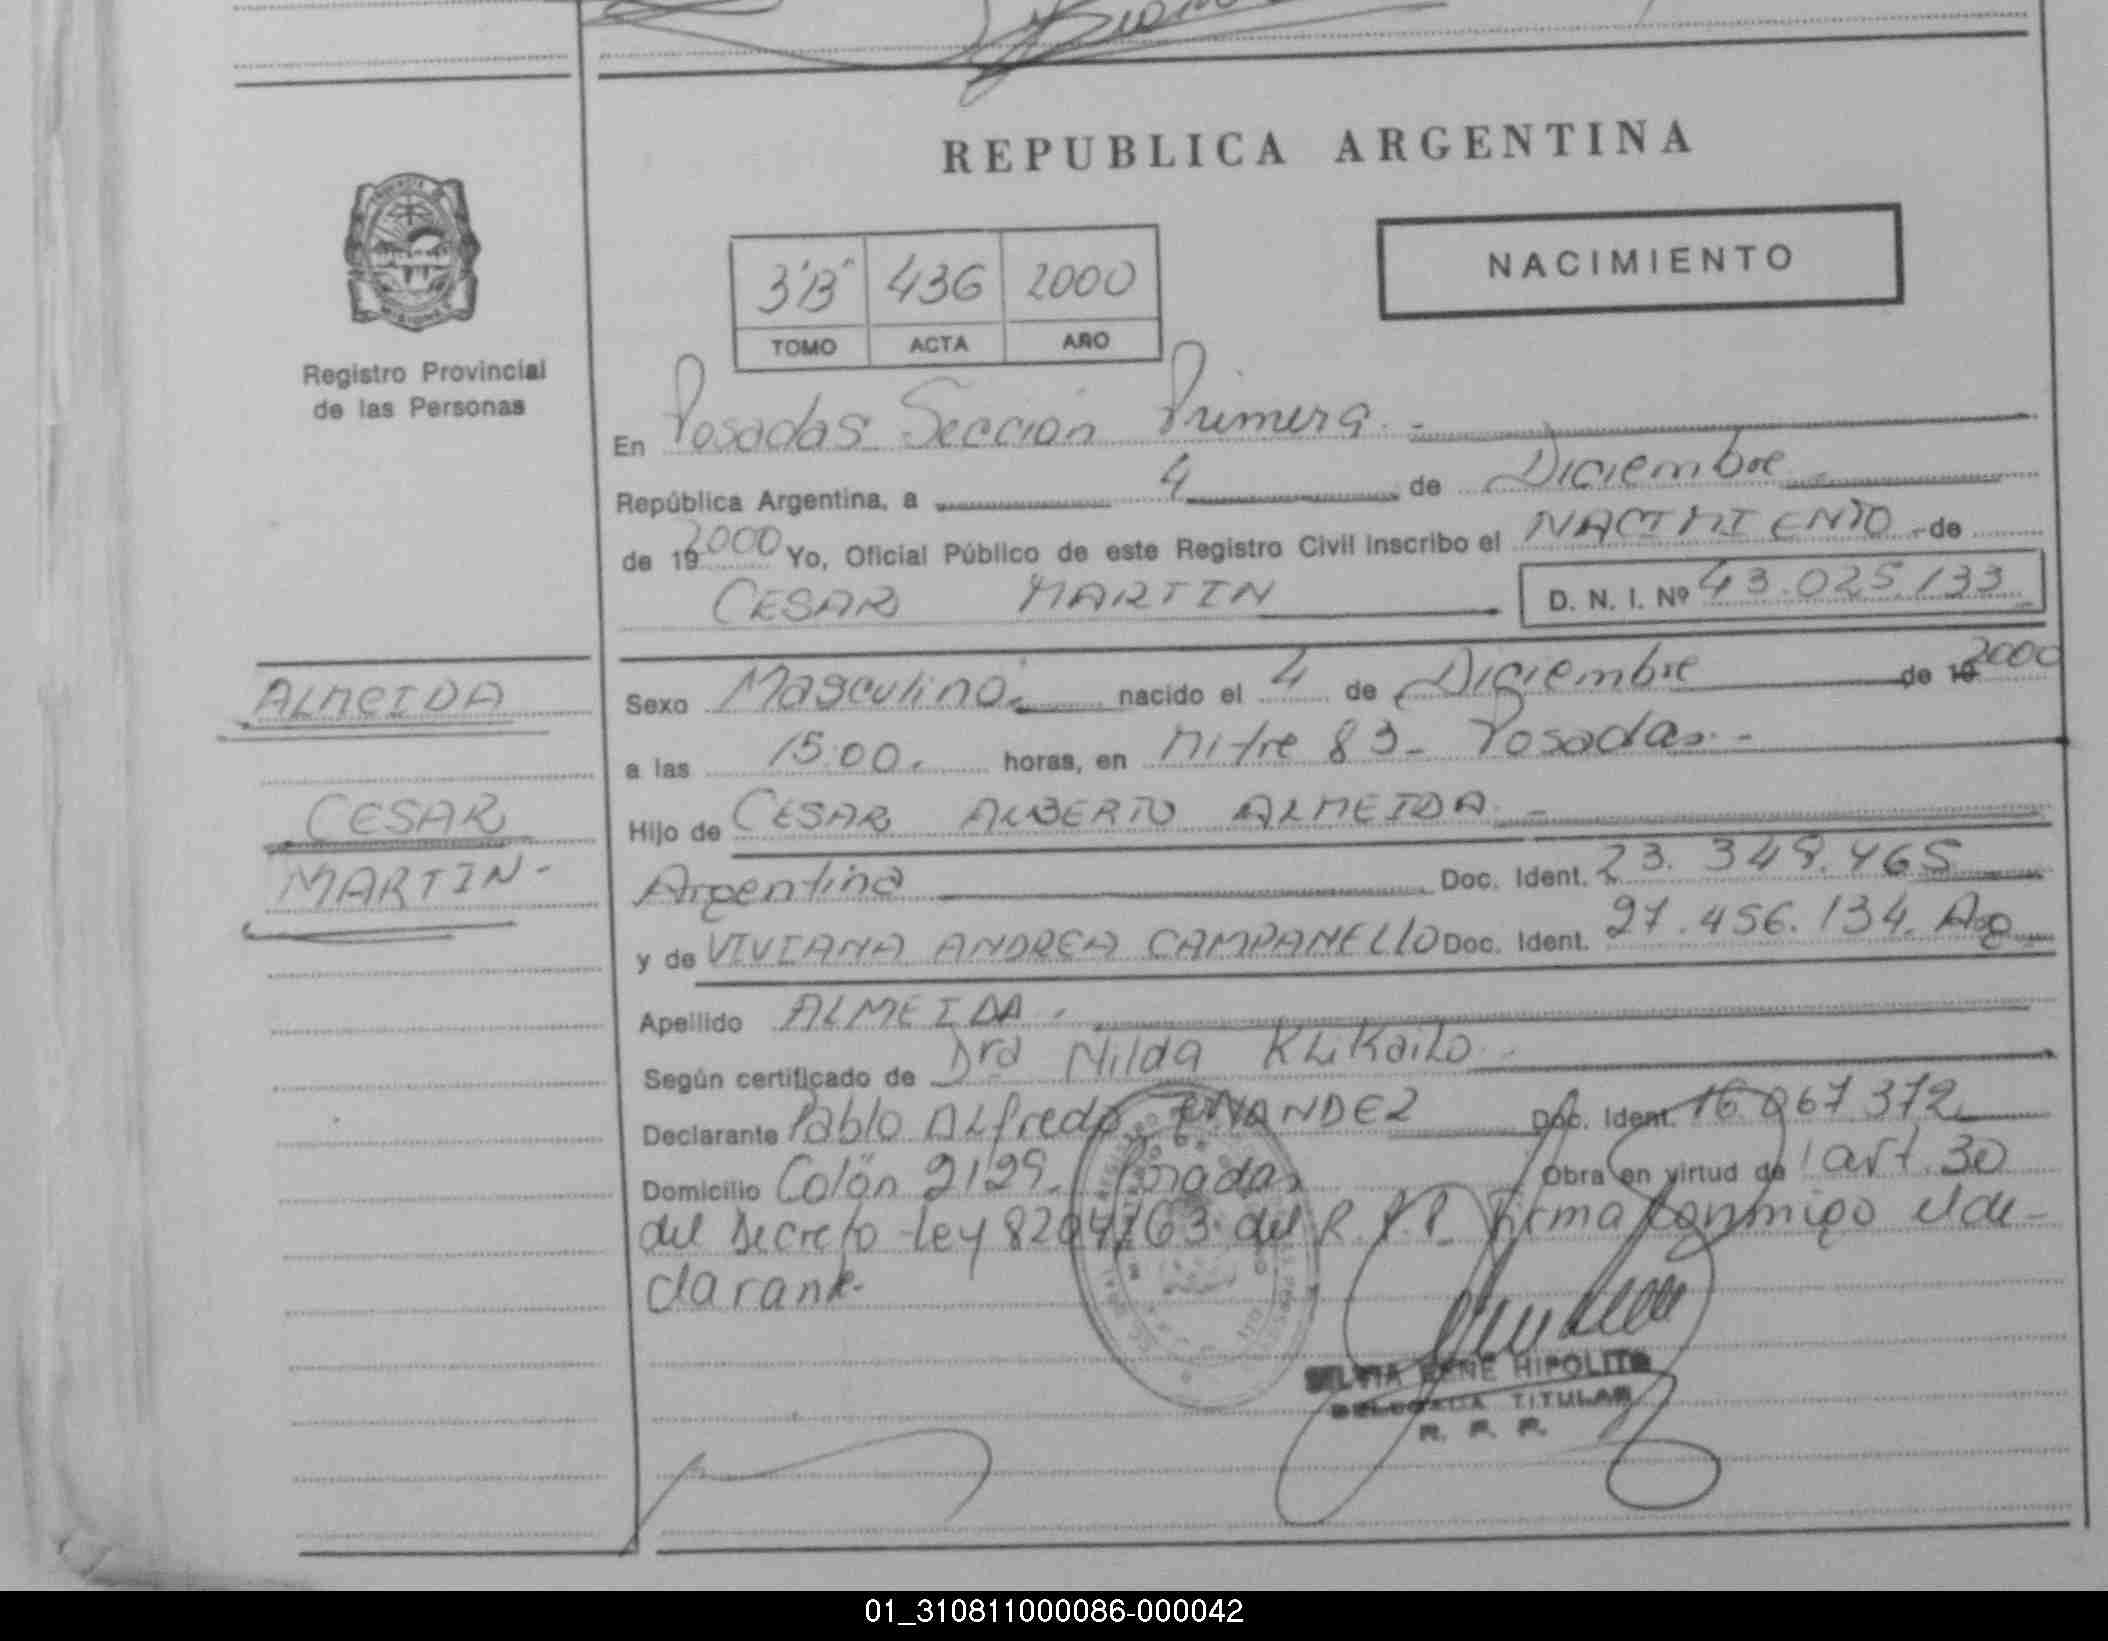 REPUBLICA ARGENTINA
NACIMIENTO
3"B" 436 2000
TOMO ACTA AÑO
Registro Provincial
de las Personas
En Posadas Sección Primera.-
República Argentina, a 4 de Diciembre
de 19 2000 Yo, Oficial Público de este Registro Civil inscribo el NACIMIENTO - de
CESAR MARTIN D. N. I. Nº 43.025.133
ALMEIDA
CESAR
MARTIN-
Sexo Masculino. nacido el 4 de Diciembre de 19 2000
a las 15:00. horas, en Mitre 83- Posadas.-
Hijo de CESAR ALBERTO ALMEIDA.-
Argentina Doc. Ident. 23.349.465
y de VIVIANA ANDREA CAMPANELLO Doc. Ident. 27.456.134. Arg
Apellido ALMEIDA.
Según certificado de Dra Nilda
Declarante Pablo ALfredo Doc. Ident. 16.067.372
Domicilio Colón 2129. Posadas Obra en virtud de l art. 30
del Decreto-Ley 8204/63 del R.P.P. Firma conmigo el de-
clarante.
SILVIA RENE HIPOLITO
DELEGADA TITULAR
R. P. P.
01_310811000086-000042